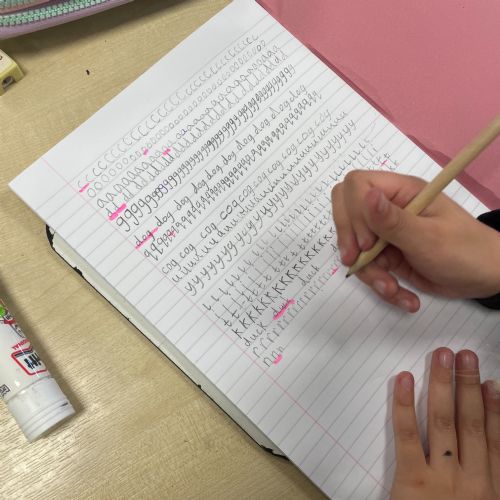 c c c c c c c c c c c c c c c c c c c c c c
o o o o o o o o o o o o o o o o o o o o o o
a a a a a a a a a a a a a a a a a a a a
d d d d d d d d d d d d d d d d d d d d d d
g g g g g g g g g g g g g g g g g g g g g g g g g g
dog dog dog dog dog dog dog dog dog
q q q q q q q q q q q q q q q q q q q q q q q
cog cog cog cog cog cog cog cog cog
u u u u u u u u u u u u u u u u u u
y y y y y y y y y y y y y y y y y y y y
l l l l l l l l l l l l l l l l l l
t t t t t t t t t t t t t t t t t t
k k k k k k k k k k k k k k k k k k k k
duck duck duck
r r r r r r r r r r r r r